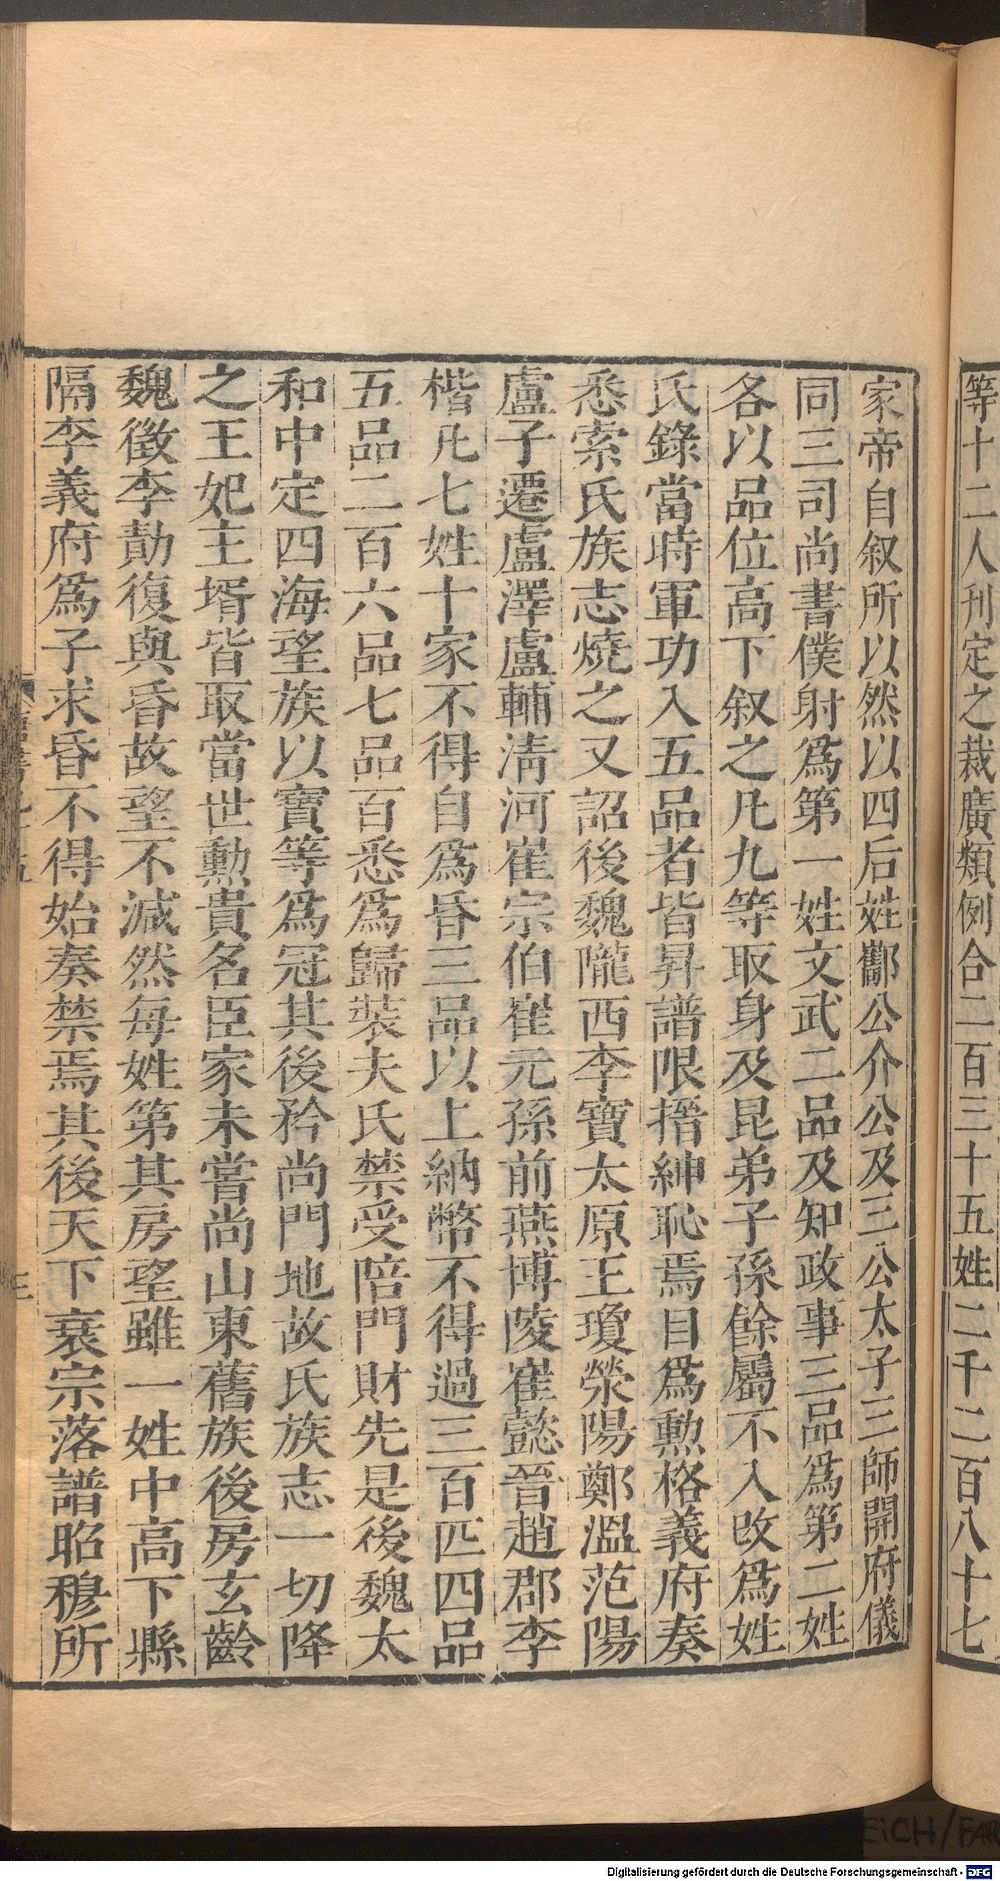 等十二人刊定之裁廣類例合二百三十五姓二千二百八十七
家帝自叙所以然以四后姓酅公介公及三公太子三師開府儀
同三司尚書僕射爲第一姓文武二品及知政事三品爲第二姓
各以品位高下叙之凡九等取身及昆弟子孫餘屬不入改爲姓
氏錄當時軍功入五品者皆昇譜限搢紳恥焉目爲勲格義府奏
悉索氏族志燒之又詔後魏隴西李寶太原王瓊滎陽鄭溫范陽
盧子遷盧澤盧輔淸河崔宗伯崔元孫前燕博陵崔懿晉趙郡李
楷凡七姓十家不得自爲昏三品以上納幣不得過三百匹四品
五品二百六品七品百悉爲歸裝夫氏禁受陪門財先是後魏太
和中定四海望族以寶等爲冠其後矜尚門地故氏族志一切降
之王妃主壻皆取當世勲貴名臣家未嘗尚山東舊族後房玄齡
魏徵李勣復與昏故望不減然每姓第其房望雖一姓中高下縣
隔李義府爲子求昏不得始奏禁焉其後天下衰宗落譜昭穆所
三
EiCH/FAR
Digitalisierung gefördert durch die Deutsche Forschungsgemeinschaft - DFG